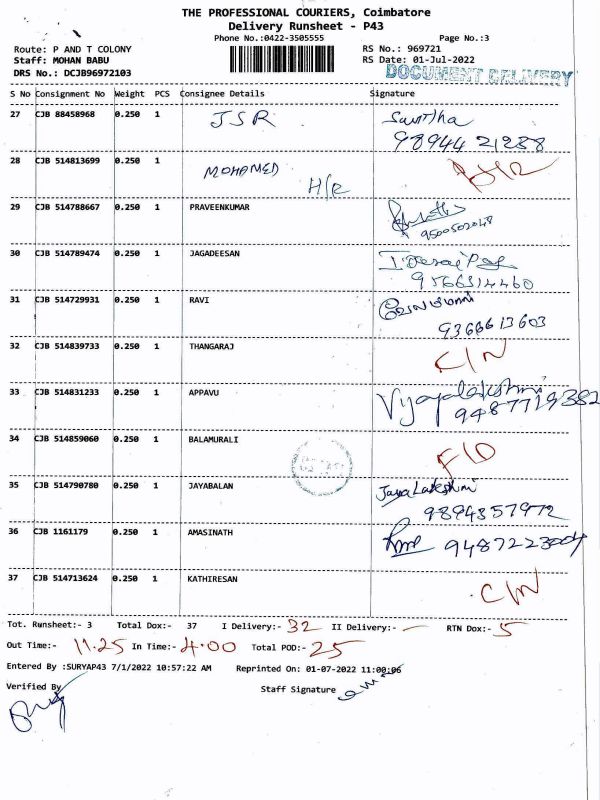 THE PROFESSIONAL COURIERS, Coimbatore
Delivery Runsheet - P43
Phone No.:0422-3505555 Page No.:3
Route: P AND T COLONY RS No.: 969721
Staff: MOHAN BABU RS Date: 01-Jul-2022
DRS No.: DCJB96972103 DOCUMENT DELIVERY
S No Consignment No Weight PCS Consignee Details Signature
27 CJB 88458968 0.250 1 JSR
9894421288
28 CJB 514813699 0.250 1 MOHAMED H/R
29 CJB 514788667 0.250 1 PRAVEENKUMAR
9500502048
30 CJB 514789474 0.250 1 JAGADEESAN
9566314460
31 CJB 514729931 0.250 1 RAVI வேலுமணி
9366613603
32 CJB 514839733 0.250 1 THANGARAJ C/N
33 CJB 514831233 0.250 1 APPAVU Vijayalakshmi
9487719382
34 CJB 514859060 0.250 1 BALAMURALI F/D
35 CJB 514790780 0.250 1 JAYABALAN Jaya Lakshmi
9894357972
36 CJB 1161179 0.250 1 AMASINATH
37 CJB 514713624 0.250 1 KATHIRESAN C/N
Tot. Runsheet:- 3 Total Dox:- 37 I Delivery:- 32 II Delivery:- – RTN Dox:- 5
Out Time:- 11.25 In Time:- 4.00 Total POD:- 25
Entered By :SURYAP43 7/1/2022 10:57:22 AM Reprinted On: 01-07-2022 11:00:06
Verified By Staff Signature